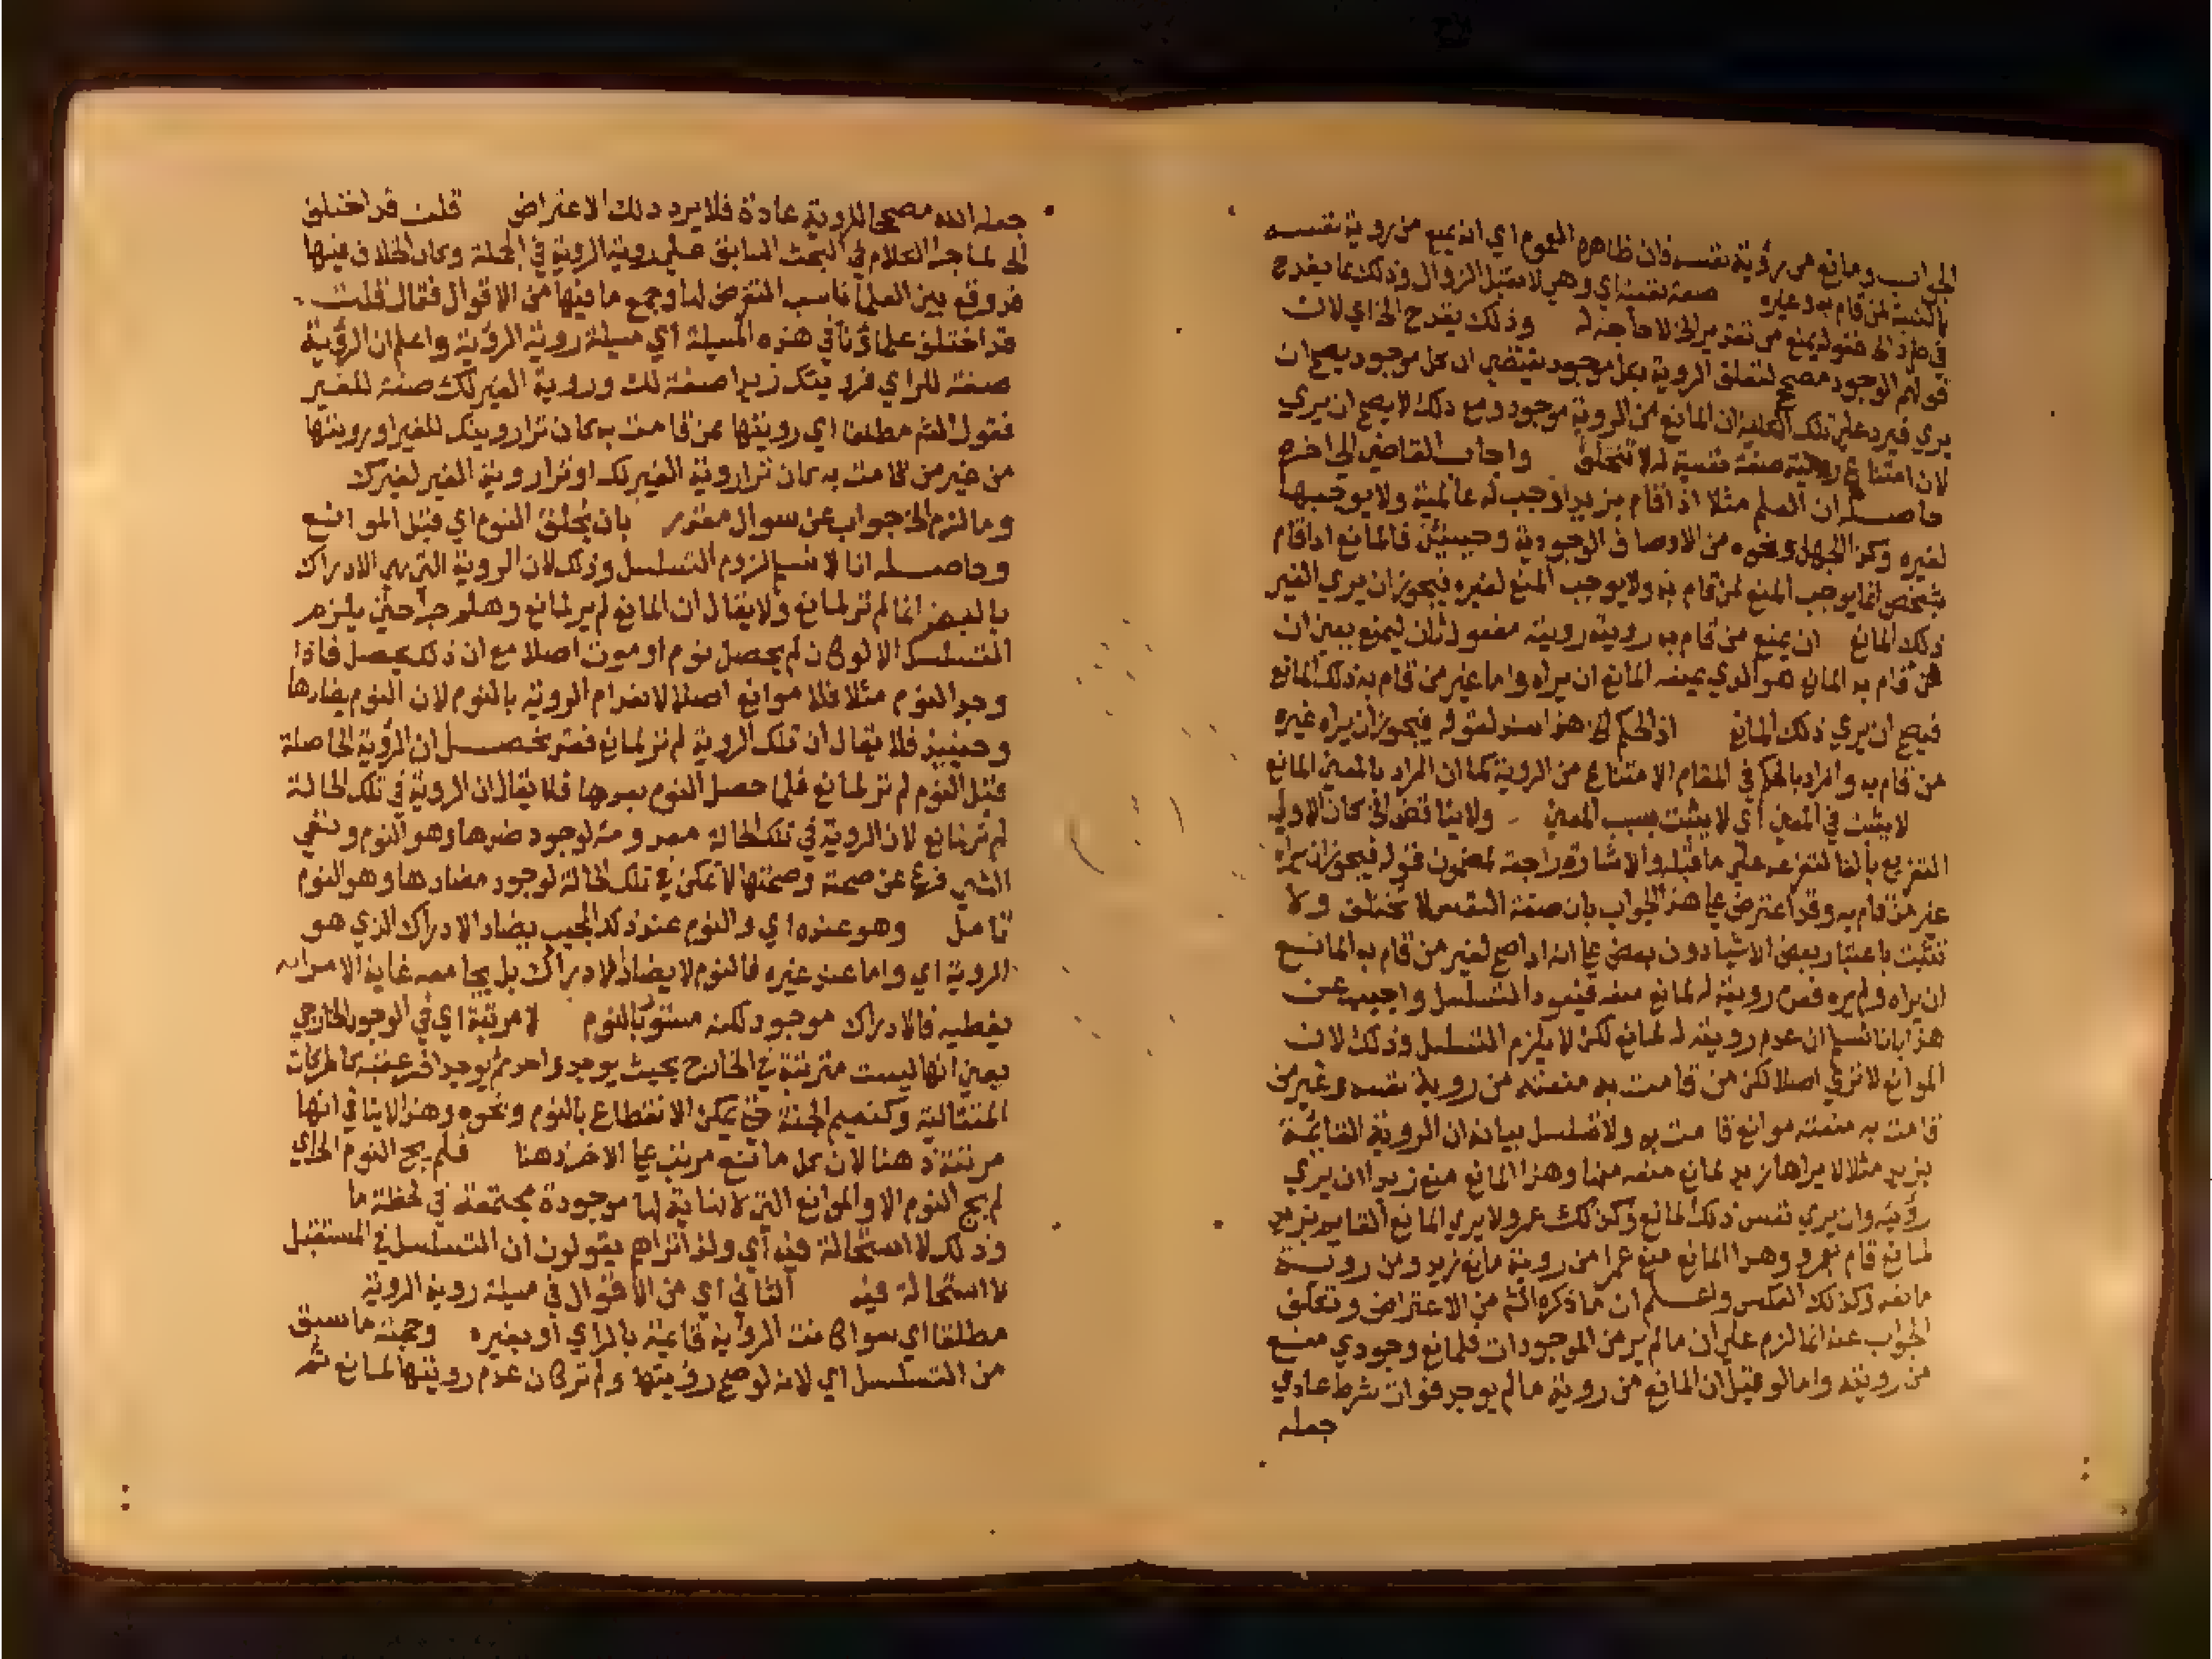 الجواب ومانع من رؤية نفسه فان ظاهره العموم اي انه يمنع من روية نفسه
بالنسبة لمن قام به وغيره صفة نفسية اي وهي لا تقبل الزوال وذلك مما يقدح
في طرد الخ فقوله يمنع من تقدير الخ لا حاجة له وذلك يقدح الخ اي لان
قولهم الوجود مصحح لتعلق الروية بكل موجود يقتضي ان كل موجود يصح ان
يري فيرد على تلك الكلية ان المانع من الروية موجود ومع ذلك لا يصح ان يري
لان امتناع رويته صفة نفسية له لا تتخلف واجاب القاضي الخ
حاصله ان العلم مثلا اذا قام بزيد اوجب له عالمية ولا يوجبها
لغيره وكذا الجهل ونحوه من الاوصاف الوجودية وحينئذ فالمانع اذا قام
بشخص انما يوجب المنع لمن قام به ولا يوجب المنع لغيره فيجوز ان يري الغير
ذلك المانع ان يمنع من قام به رويته رويته مفعول ثان ليمنع يعين ان
من قام به المانع هو الذي يمنعه المانع ان يراه واما غير من قام به ذلك المانع
فيصح ان يري ذلك المانع اذ الحكم الخ هذا سند لقوله فيجوز ان يراه غيره
من قام به والمراد بالحكم في المقام الامتناع من الروية كما ان المراد بالمعني المانع
لا يثبت في المعني اي لا يثبت بسبب المعني ولا يناقض الخ كان الاولي
التفريع بالفا لتفرعه على ما قبله والاشارة راجعة لمضمون قوله فيجوز ان يراه
غير من قام به وقد اعترض على هذا الجواب بان صفة النفس لا تختلف ولا
تثبت باعتبار بعض الاشيا دون بعض على انه اذا صح لغير من قام به المانع
ان يراه ولم يره فعدم رويته له لمانع منعه فيعود التسلسل واجيب عن
هذا بانا نسلم ان عدم رويته له لمانع لكن لا يلزم التسلسل وذلك لان
الموانع لا تري اصلا لكن من قامت به منعته من روية نفسه وغير من
قامت به منعته موانع قامت به ولا تسلسل بيانه ان الروية القائمة
بزيد مثلا لا يراها زيد لمانع منعه منها وهذا المانع منع زيدا ان يري
رؤيته وان يري نفس ذلك المانع وكذلك عمرو لا يري المانع القايم بزيد
لمانع قام بعمرو وهذا المانع منع عمرا من روية مانع زيد ومن روية
مانعه وكذلك العكس واعلم ان ما ذكره الش من الاعتراض وتعلق
الجواب عنه انما لزم على ان ما لم ير من الموجودات فلمانع وجودي منع
من رويته واما لو قيل ان المانع من روية ما لم يوجد فوات شرط عادي
جعله
جعله الله مصححا للروية عادة فلا يرد ذلك الاعتراض قلت قد اختلف
الخ لما جر الكلام في البحث السابق على روية الروية في الجملة وكان الخلاف فيها
قد وقع بين العلما ناسب التعرض لها وجمع ما فيها من الاقوال فقال قلت
قد اختلف علماؤنا في هذه المسيلة اي مسيلة روية الروية واعلم ان الرؤية
صفة للراي فرويتك زيدا صفة لك وروية الغير لك صفة للغير
فقول الش مطلقا اي رويتها ممن قامت به كان تراروبتك للغير او رويتها
من غير من قامت به كان تراروية الغير لك او تراروية الغير لغيرك
وما لزم الخ جواب عن سوال مقدر بان يخلق النوم اي قبل الموانع
وحاصله انا لا نسلم لزوم التسلسل وذلك لان الروية التي هي الادراك
بالبصر انما لم تر لمانع ولا يقال ان المانع لم ير لمانع وهلم جرا حتي يلزم
التسلسل الا لو كان لم يحصل نوم او موت اصلا مع ان ذلك يحصل فاذا
وجد النوم مثلا فلا موانع اصلا لانعدام الروية بالنوم لان النوم يضادها
وحينيذ فلا يقال ان تلك الروية لم تر لمانع فقد تحصل ان الرؤية الحاصلة
قبل النوم لم تر لمانع فلما حصل النوم بعدها فلا يقال ان الروية في تلك الحالة
لم تر لمانع لان الروية في تلك الحالة معدومة لوجود ضدها وهو النوم ونفي
الشي فرع عن صحته وصحتها لا تمكن في تلك الحالة لوجود مضادها وهو النوم
تامل وهو عنده اي والنوم عند ذلك المجيب يضاد الادراك الذي هو
الروية اي واما عند غيره فالنوم لا يضاد الادراك بل يجامعه غاية الامر انه
يغطيه فالادراك موجود لكنه مستور بالنوم لا مرتبة اي في الوجود الخارجي
بمعني انها ليست مترتبة في الخارج بحيث يوجد واحد ثم يوجد اخر عقبه كالحركات
المتتالية وكنعيم الجنة حتي يمكن الانقطاع بالنوم ونحوه وهذا لا ينافي انها
مرتبة ذهنا لان كل مانع مرتب على الاخر ذهنا فلم يجي النوم الخ اي
لم يجي النوم الا والموانع التي لا نهاية لها موجودة مجتمعة في لحظة ما
وذلك لا استحالة فيه اي ولذا تراهم يقولون ان التسلسل في المستقبل
لا استحالة فيه الثاني اي من الاقوال في مسيلة روية الروية
مطلقا اي سوا كانت الرؤية قائمة بالراي او بغيره وحجته ما سبق
من التسلسل اي لانه لو صح رؤيتها ولم تر كان عدم رويتها لمانع ثم